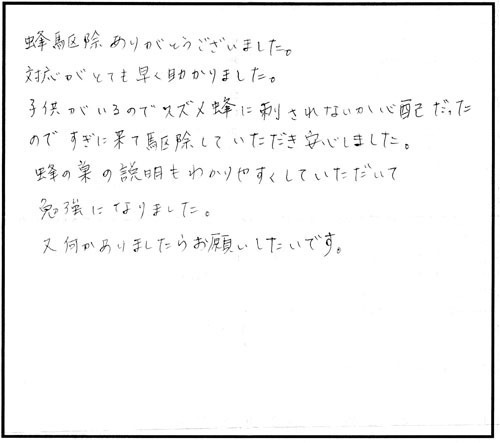 蜂駆除ありがとうございました。
対応がとても早く助かりました。
子供がいるのでスズメ蜂に刺されないか心配だった
のですぎに来て駆除していただき安心しました。
蜂の巣の説明もわかりやすくしていただいて
勉強になりました。
又何かありましたらお願いしたいです。